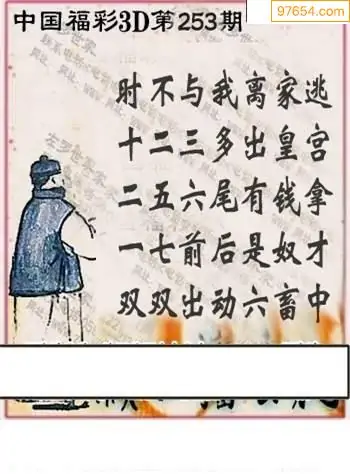 97654.com
中国福彩3D第253期
时不与我离家逃
十二三多出皇宫
二五六尾有钱拿
一七前后是奴才
双双出动六畜中